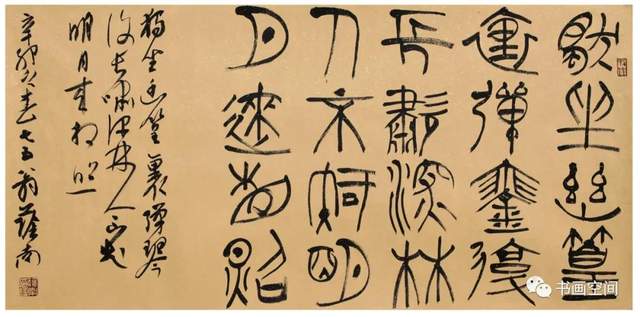 獨坐幽篁
裏彈琴復
長嘯深林
人不知明
月來相照
獨坐幽篁裏彈琴
復長嘯深林人不知
明月來相照
辛卯春七五翁
书画空间